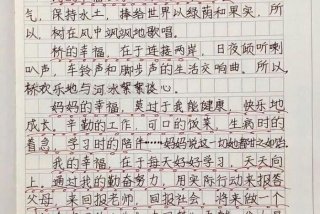 气,保持水土,捧给世界以绿荫和果实,所
以,树在风中飒飒地歌唱。
桥的幸福,在于连接两岸,日夜倾听喇
叭声,车铃声和脚步声的生活交响曲。所以,
桥欢乐地与河水絮絮谈心。
妈妈的幸福,莫过于我能健康,快乐地
成长。辛勤的工作,可口的饭菜,生病时的
着急,学习时的陪伴……妈妈说这一切她都甘之如饴。
我的幸福,在于每天好好学习,天天向
上,通过我的勤奋努力,用实际行动来报答
父母,来回报老师,回报社会,将来做一个